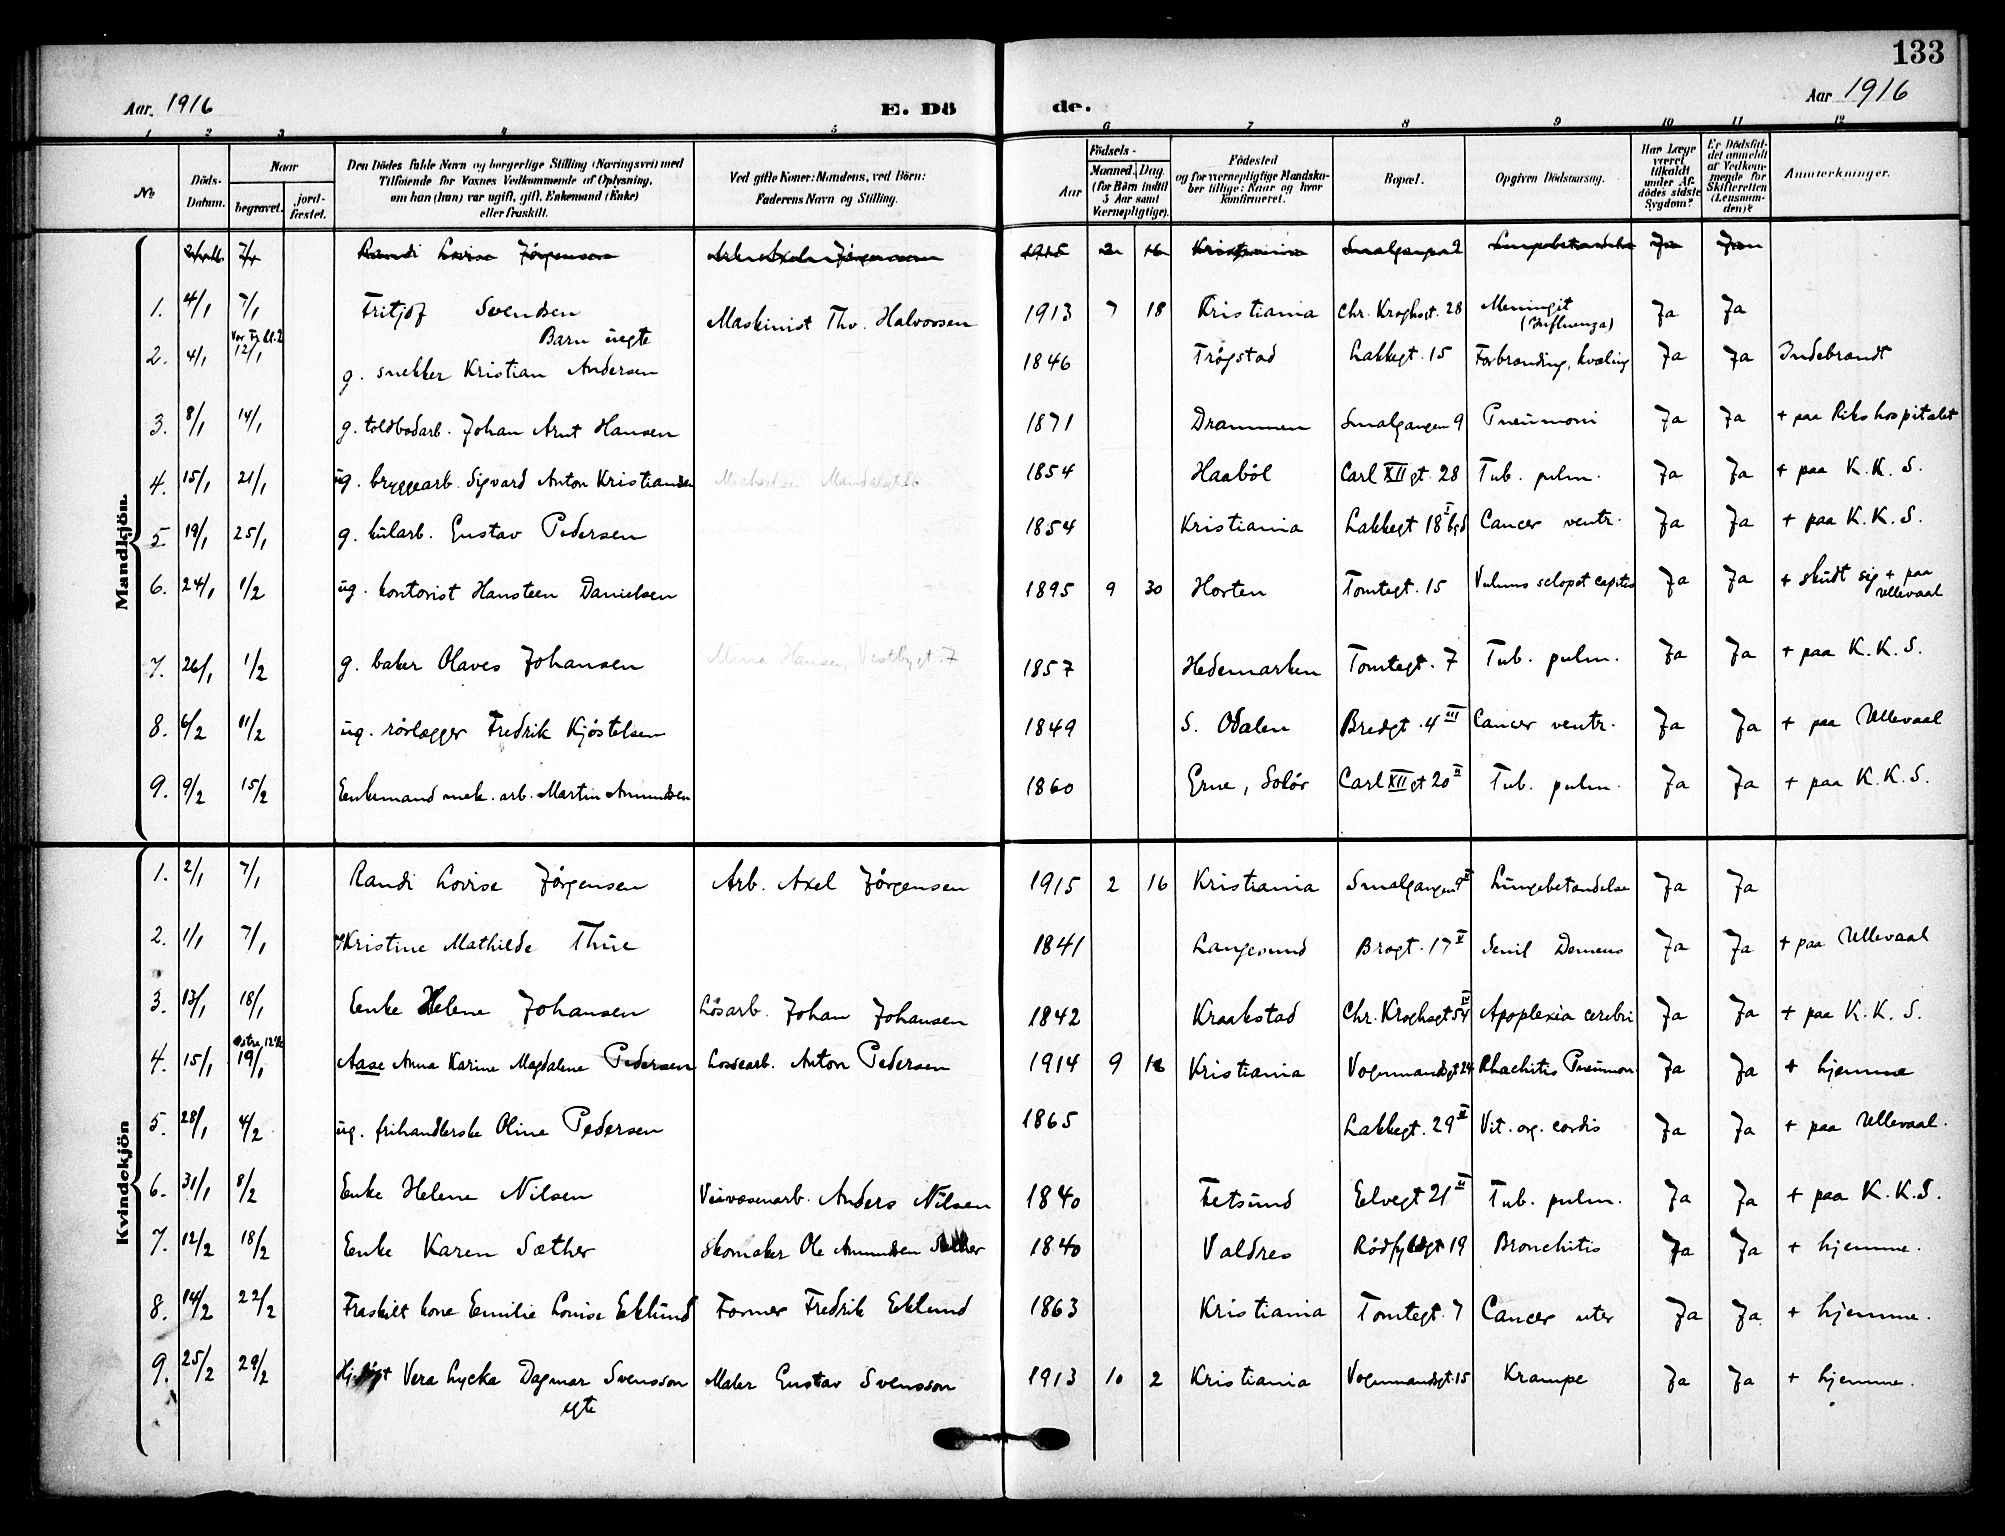 133
Aar. 1916
E. Dö
de.
Aar 1916
1 2 3 4 5 6 7 8 9 10 11 12
No
Döds-
Datum.
Naar
begravet.
jord-
fæstet.
Den Dödes fulde Navn og borgerlige Stilling (Næringsvei) med
Tilföiende for Voxnes Vedkommende af Oplysning,
om han (hun) var ugift, gift, Enkemand (Enke)
eller fraskilt.
Ved gifte Koner: Mandens, ved Börn:
Faderens Navn og Stilling.
Födsels-
Aar
Maaned.
Dag.
(for Börn indtil
5 Aar samt
Værnepligtige).
Födested
og for værnepligtige Mandska-
ber tillige: Naar og hvor
konfirmeret.
Bopæl.
Opgiven Dödsaarsag.
Har Læge
været
tilkaldt
under Af-
dödes sidste
Sygdom?
Er Dödsfal-
det anmeldt
af Vedkom-
mende for
Skifteretten
(Lensman-
den)?
Anmærkninger.
Mandkjön.
7/1 Randi Lovise Jörgensen Arb. Axel Jörgensen 1915 2 16 Kristiania Smalgangen 9 Lungebetændelse Ja Ja
1. 4/1 7/1 Fritjof Svendsen Maskinist Thv. Halvorsen 1913 7 18 Kristiania Chr. Kroghsgt. 28 Meningit Ja Ja
(Influenza)
Barn uegte
2. 4/1 12/1 g. snekker Kristian Andersen 1846 Trøgstad Lakkegt. 15 Forbrænding, kvæling Ja Ja Indebrændt
3. 8/1 14/1 g. toldbodarb. Johan Arnt Hansen 1871 Drammen Smalgangen 9 Pneumoni Ja Ja + paa Rikshospitalet
4. 15/1 21/1 ug. bryggearb. Sigvard Anton Kristiansen 1854 Haaböl Carl XII gt. 28 Tub. pulm. Ja Ja + paa K. K. S.
5 19/1 25/1 g. kularb. Gustav Pedersen 1854 Kristiania Lakkegt 18 I bgd Cancer ventr. Ja Ja + paa K. K. S.
6. 24/1 1/2 ug. kontorist Hansteen Danielsen 1895 9 30 Horten Tomtegt. 15 Vulnus sclopet capitis Ja Ja + skudt sig + paa
Ullevaal
7. 26/1 1/2 g. baker Olaves Johansen Mina Hansen, Vestbygt. 7 1857 Hedemarken Tomtegt. 7 Tub. pulm. Ja Ja + paa K. K. S.
8. 6/2 11/2 ug. rørlægger Fredrik Kjöstelsen 1849 S. Odalen Bredgt. 4 III Cancer ventr. Ja Ja + paa Ullevaal
9. 9/2 15/2 Enkemand mek. arb. Martin Amundsen 1860 Grue, Solör Carl XII gt 20 II Tub. pulm. Ja Ja + paa K. K. S.
Kvindekjön
1. 2/1 7/1 Randi Lovise Jörgensen Arb. Axel Jörgensen 1915 2 16 Kristiania Smalgangen 9 II Lungebetændelse Ja Ja
2. 1/1 7/1 Kristine Mathilde Thue 1841 Langesund Brogt. 17 V Senil Demens Ja Ja + paa Ullevaal
3. 13/1 18/1 Enke Helene Johansen Løsarb. Johan Johansen 1842 Kraakstad Chr. Kroghsgt 54 IV Apoplexia cerebri Ja Ja + paa K. K. S.
4. 15/1 19/1 Aase Anna Karine Magdalene Pedersen Lossearb. Anton Pedersen 1914 9 Kristiania Vognmandsgt 24 Rhachitis Pneumon. Ja Ja + hjemme
5. 28/1 4/2 ug. frihandlerske Oline Pedersen 1865 Lakkegt. 29 II Vit. org. cordis Ja Ja + paa Ullevaal.
6. 31/1 8/2 Enke Helene Nilsen Veivæsenarb. Anders Nilsen 1840 Fetsund Elvegt 21 II Tub. pulm. Ja Ja + paa K. K. S.
7. 12/2 18/2 Enke Karen Sæther skomaker Ole Amundsen Sæther 1840 Valdres Rödfyldgt 19 Bronchitis Ja Ja + hjemme.
8. 14/2 22/2 Fraskilt kone Emilie Louise Eklund Former Fredrik Eklund 1863 Kristiania Tomtegt. 7 Cancer uter Ja Ja + hjemme.
9. 25/2 29/2 Vera Lycka Dagmar Svensson Maler Gustav Svensson 1913 10 2 Kristiania Vognmandsgt. 15 Krampe Ja Ja + hjemme.
egte